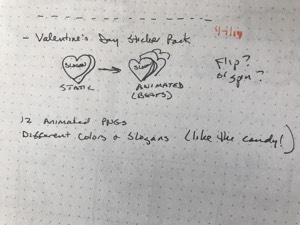 - Valentine's Day Sticker Pack
Flip?
or
Spin?
SLOGAN
STATIC
ANIMATED
(BEATS)
12 Animated PNGs
Different Colors & Slogans (like the candy!)